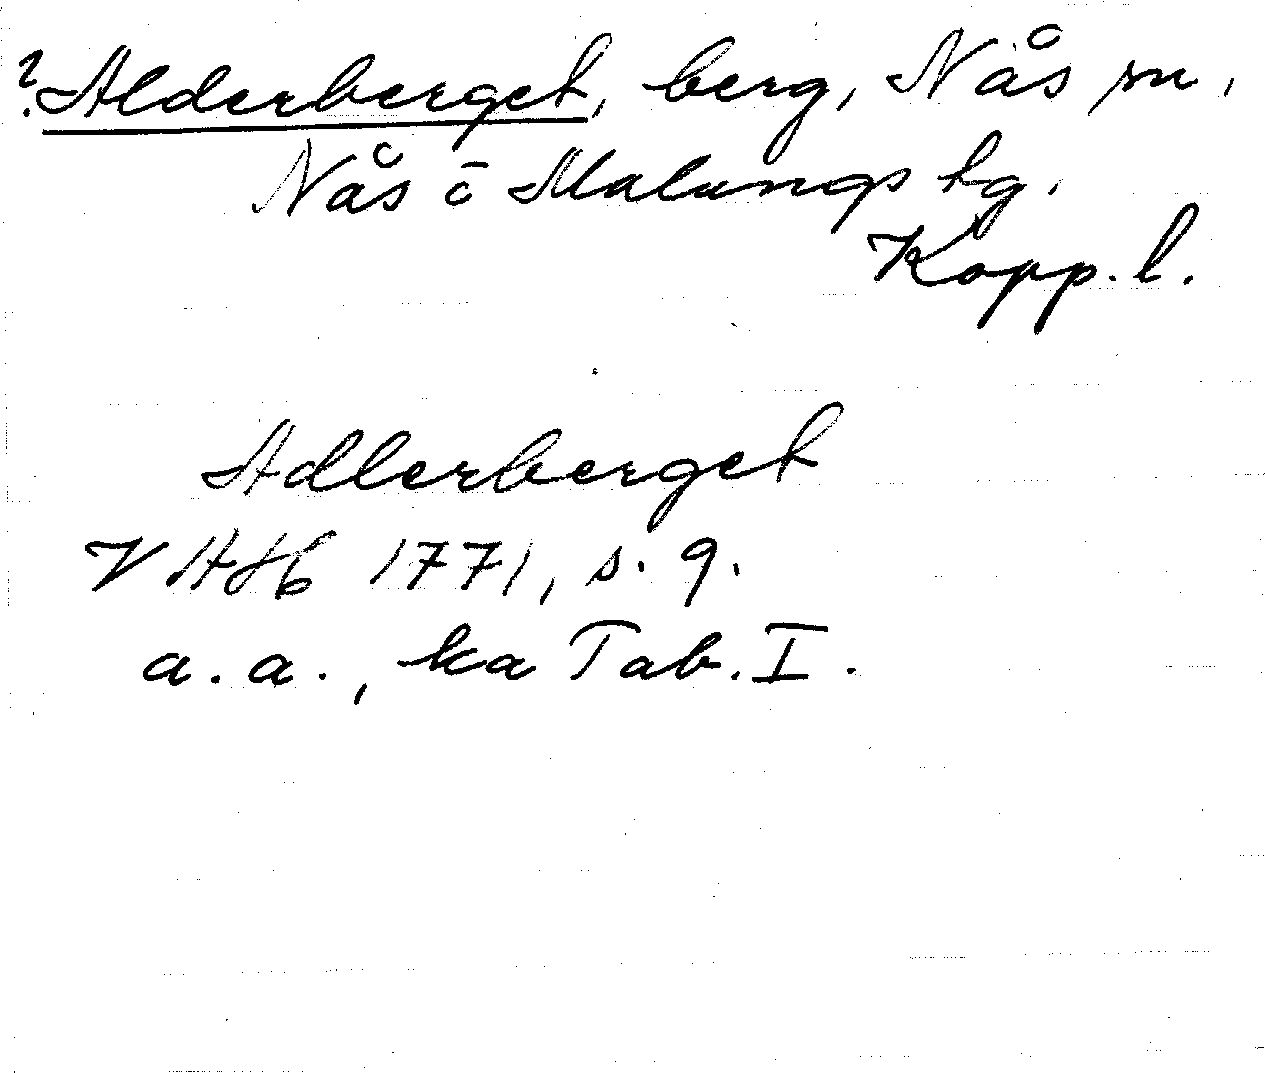 ?Alderberget, berg, Nås sn,
Nås ō Malungs tg.
Kopp. l.
Adlerberget
VAHb 1771, s. 9.
a. a., ka Tab. I.